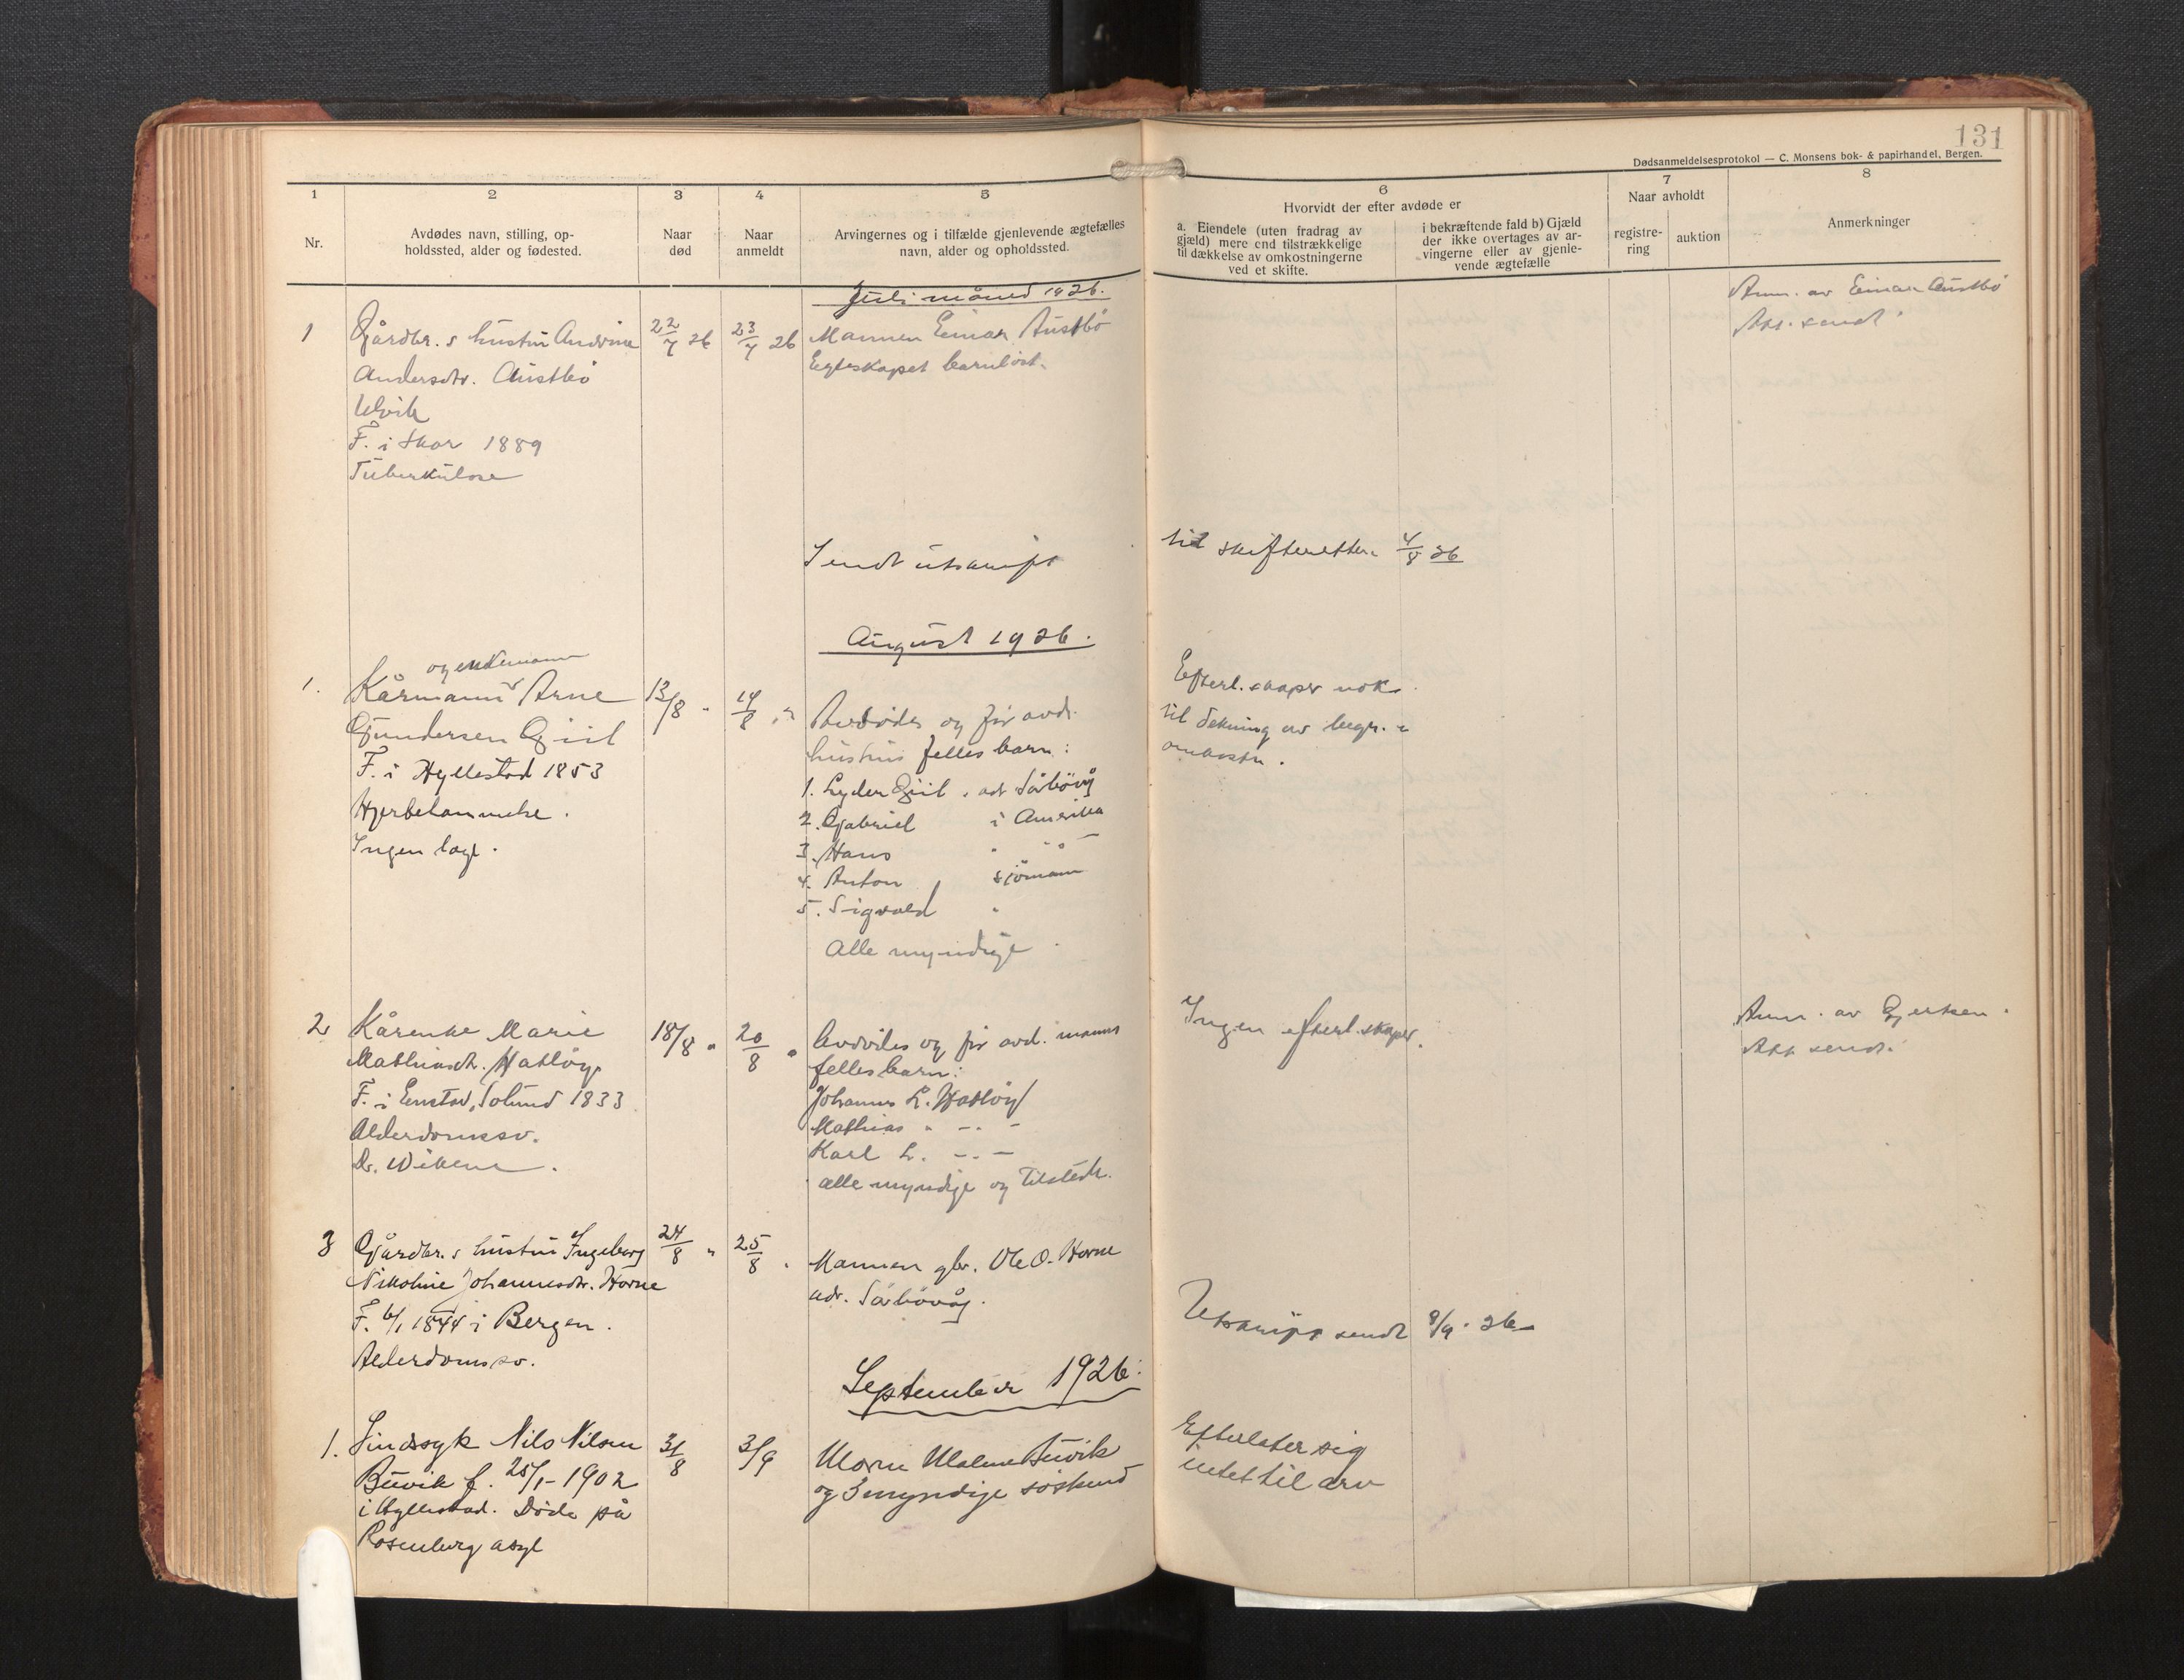 131
Dødsanmeldelsesprotokol — C. Monsens bok- & papirhandel, Bergen.
1
2
3
4
5
6
7
8
Nr.
Avdødes navn, stilling, op-
holdssted, alder og fødested.
Naar
død
Naar
anmeldt
Arvingernes og i tilfælde gjenlevende ægtefælles
navn, alder og opholdssted.
Hvorvidt der efter avdøde er
a. Eiendele (uten fradrag av
gjæld) mere end tilstrækkelige
til dækkelse av omkostningerne
ved et skifte.
i bekræftende fald b) Gjæld
der ikke overtages av ar-
vingerne eller av gjenle-
vende ægtefælle
Naar avholdt
registre-
ring
auktion
Anmerkninger
Juli måned 1926.
1
Gårdbr.s hustru Andrine
Andersdtr. Austbö
Ulvik
F. i Skor 1889
Tuberkulose
22/7 26
23/7 26
Mannen Einar Austbö
Egteskapet barnlöst.
Anm. av Einar Austbö
Att. sendt
Sendt utskrift til skifteretten 4/8 26
August 1926.
1.
og enkemann
Kårmann Arne
Gundersen Giil
F. i Hyllestad 1853
Hjertelammelse.
Ingen læge.
13/8 "
14/8 "
Avdödes og för avd.
hustrus felles barn:
1. Lyder Giil, adr Sörbövåg
2. Gabriel i Amerika
3. Hans " "
4. Anton sjömann
5. Sigvald "
Alle myndige.
Efterl.skaper nok
til dekning av begr.
omkostn.
2
Kårenke Marie
Mathiasdtr. Hatlöy
F. i Enstad, Solund 1833
Alderdomssv.
Dr. Wikene.
18/8 "
20/8 "
Avdödes og för avd. manns
felles barn:
Johannes L. Hatlöy
Mathias " - " -
Karl L. - " -
alle myndige og tilstede.
Ingen efterl.skaper.
Anm. av Gjertsen.
Att sendt.
3
Gårdbr.s hustru Ingeborg
Nikoline Johannesdtr. Horne
F. 6/1 1844 i Bergen.
Alderdomssv.
24/8 "
25/8 "
Mannen gbr. Ole O. Horne
adr. Sörbövåg.
Utskrift sendt 8/9. 26
September 1926.
1.
Sindssyk Nils Nilsen
Buvik f. 25/1 - 1902
i Hyllestad. Döde på
Rosenberg asyl
31/8
3/9
Moren Malene Buvik
og 3 myndige söskend
Efterlater sig
intet til arv